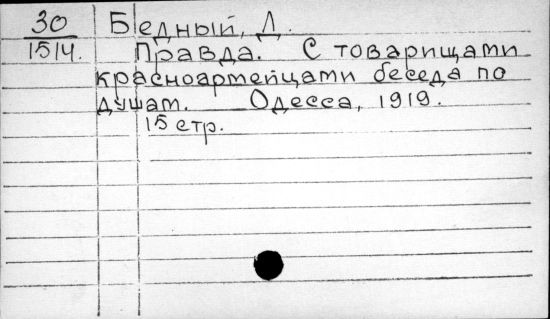 30 Бедный, Д.
1514. Правда. С товарищами
красноармейцами беседа по
душам. Одесса, 1919.
15 стр.